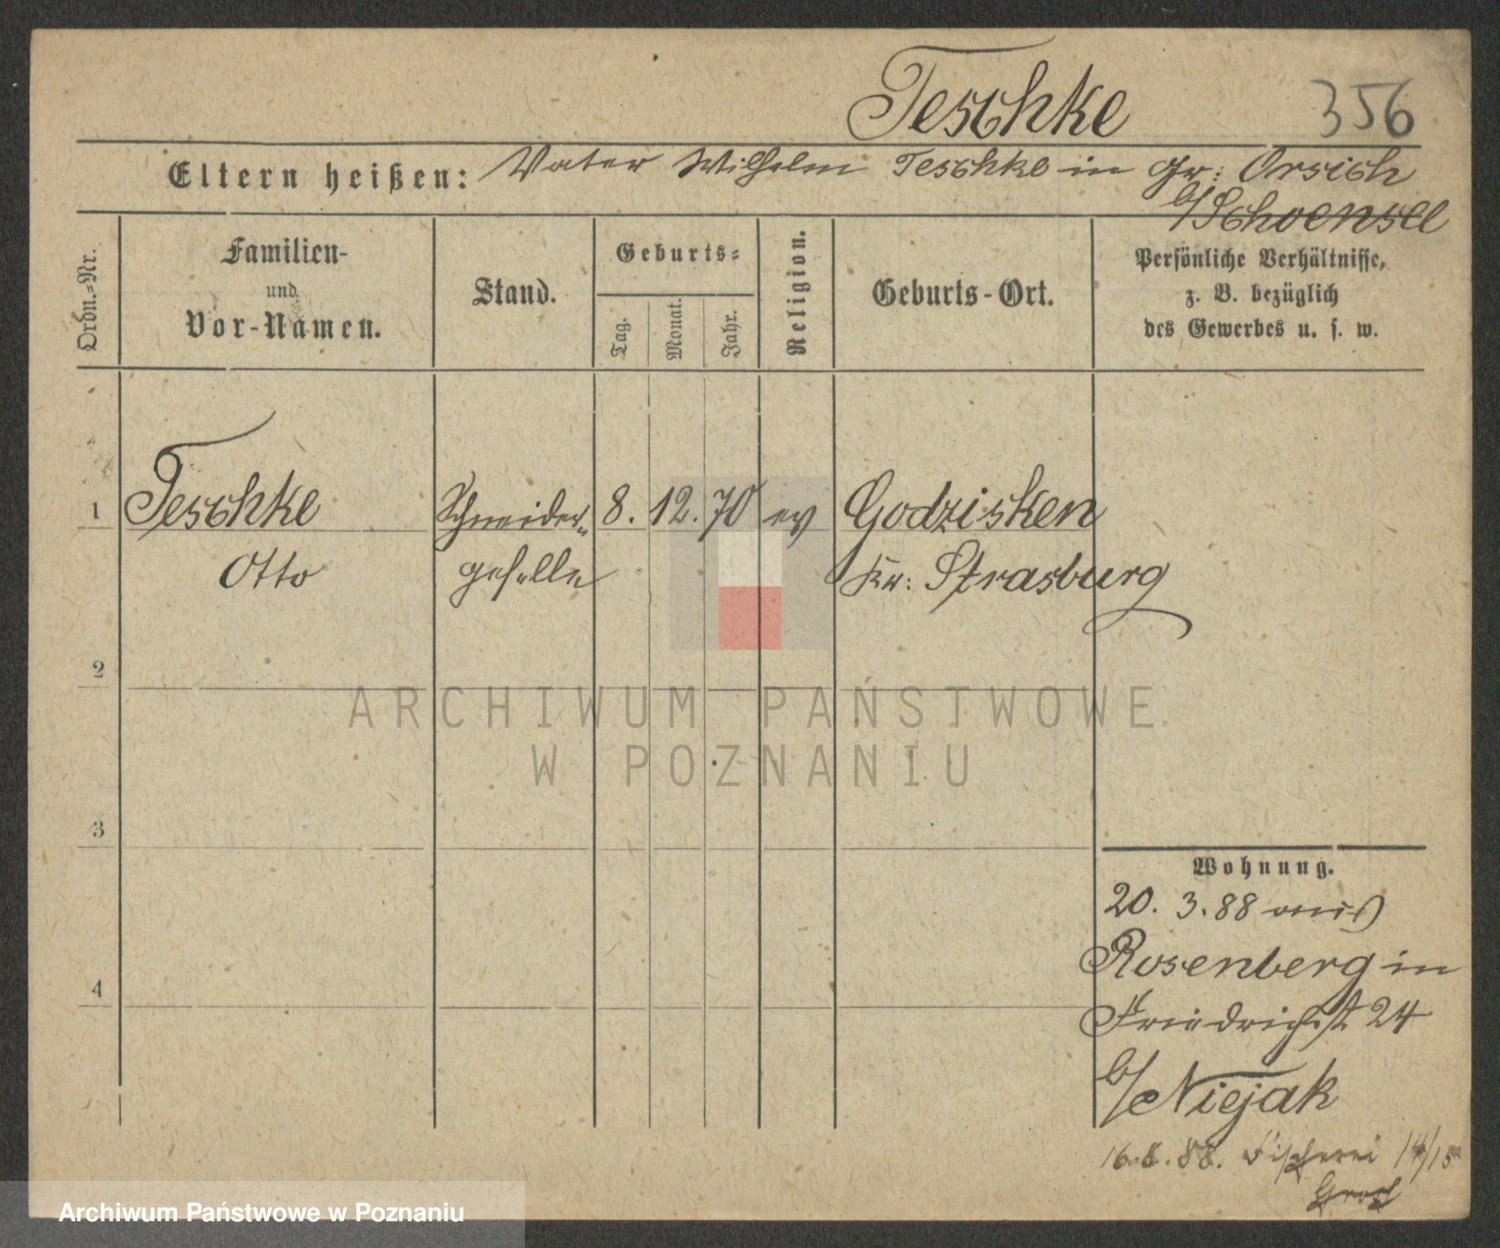 Teschke 356
Eltern heißen: Vater Wilhelm Teschke in Gr: Orsich
b/Schoensee
Ordn.-Nr.
Familien-
und
Vor-Namen.
Stand.
Geburts-
Tag.
Monat.
Jahr.
Religion.
Geburts-Ort.
Persönliche Verhältnisse,
z. B. bezüglich
des Gewerbes u. s. w.
1 Teschke Schneider- 8. 12. 70 ev Godzisken
Otto geselle Kr: Strasburg
2
ARCHIWUM PAŃSTWOWE
W POZNANIU
3
Wohnung.
20. 3. 88 aus
Rosenberg in
4
Friedrichst 24
b/Niejak
16. 8. 88. Fischerei 14/15
Archiwum Państwowe w Poznaniu